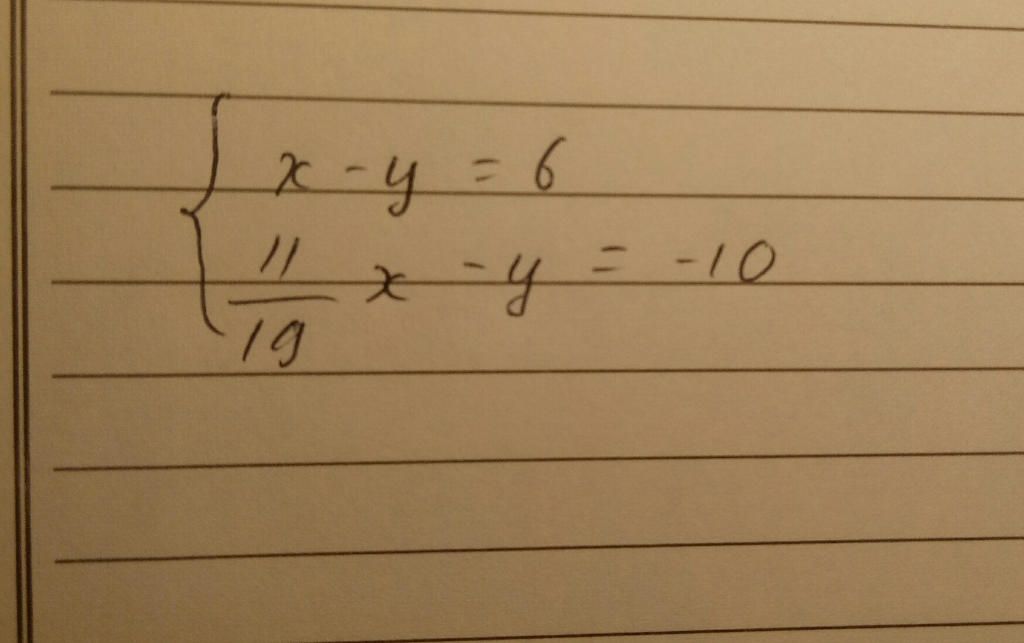 x - y = 6
11/19 x - y = -10